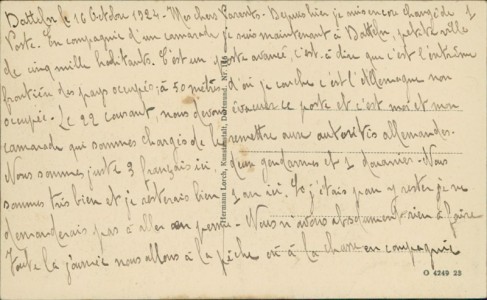 Datteln le 16 Octobre 1924 - Mes chers Parents. Depuis hier je suis encore changé de 1
Poste. En compagnie d'un camarade je suis maintenant à Datteln, petite ville
de cinq mille habitants. C'est un poste avancé, c'est à dire que c'est l'extrême
frontière des pays occupés, à 50 mètres d'où je couche c'est l'Allemagne non
occupée. Le 22 courant, nous devons évacuer ce poste et c'est moi et mon
camarade qui sommes chargés de le remettre aux autorités allemandes.
Nous sommes juste 3 français ici deux gendarmes et 1 douanier. Nous
sommes très bien et je resterais bien 1 an ici. Si j'étais pour y rester je ne
demanderais pas à aller en perme. Nous n'avons absolument rien à faire
Toute la journée nous allons à la pêche ou à la chasse en compagnie
Hermann Lorch, Kunstanstalt, Dortmund.
O 4249 23